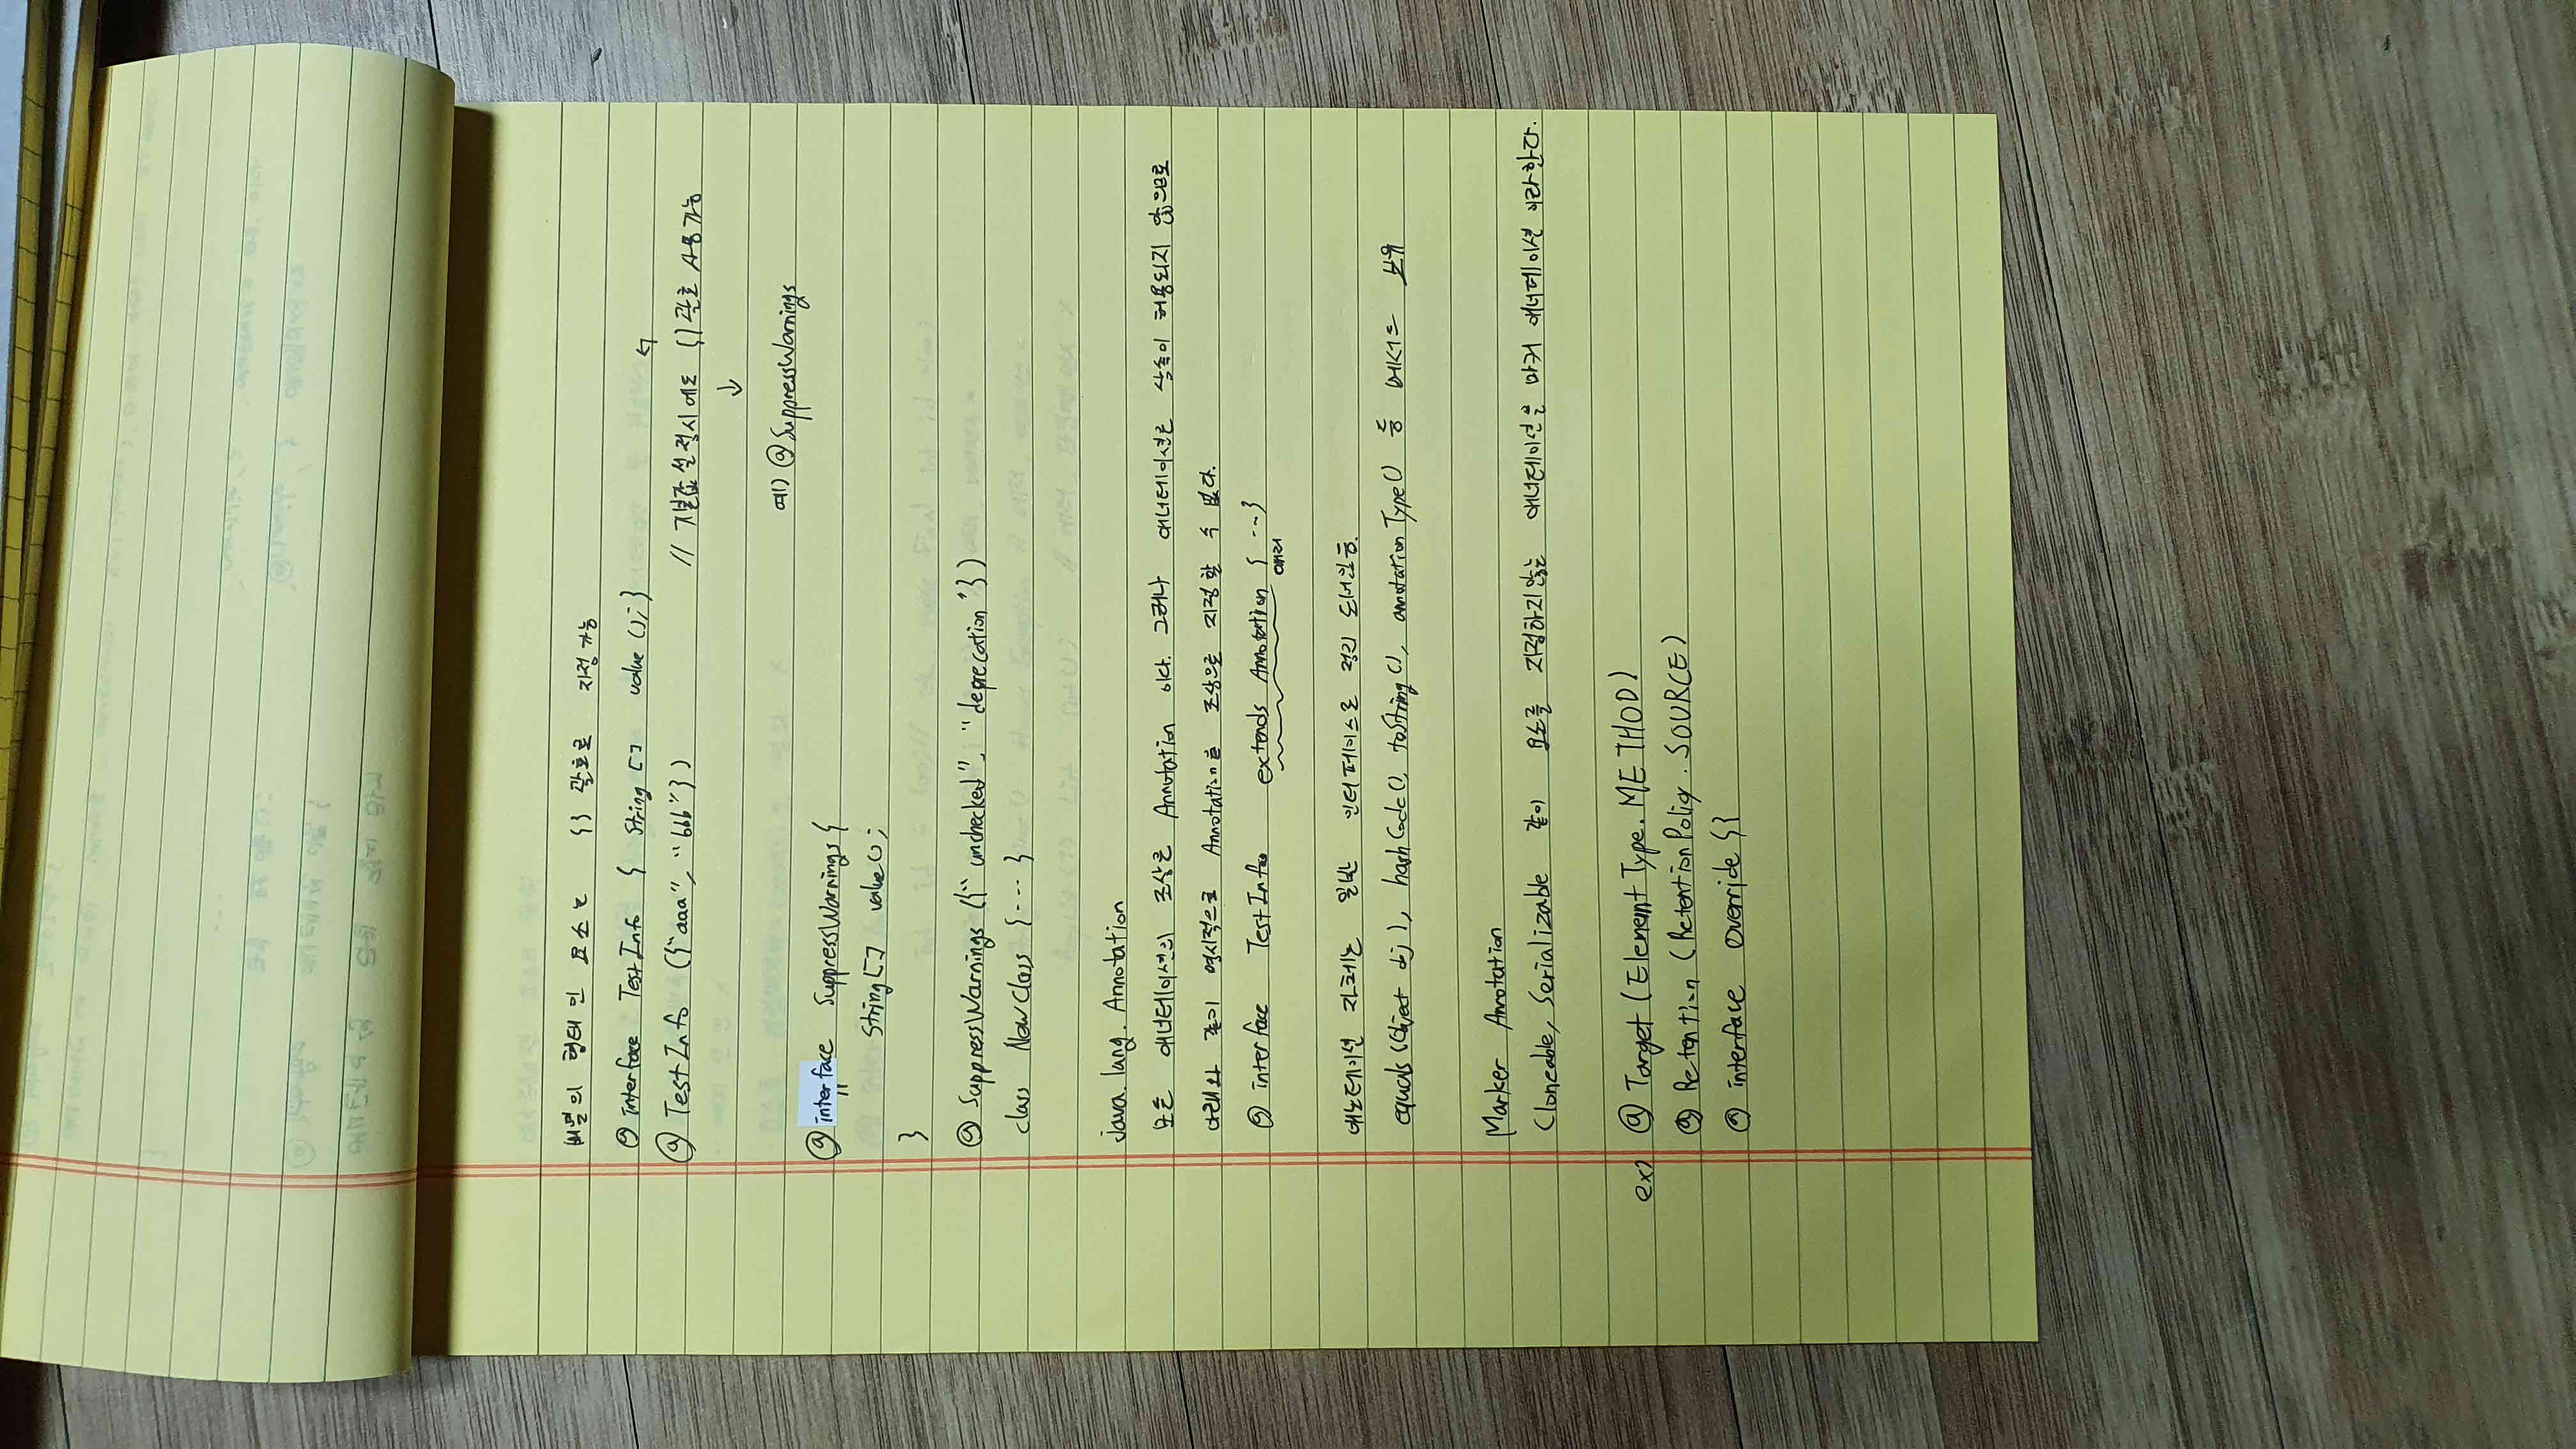 배열의 형태인 요소는 {} 괄호로 지정가능
@interface TestInfo { String[] value(); }
@TestInfo ({"aaa", "bbb"}) // 기본값 설정시에도 {} 괄호 사용가능
↓
예) @SuppressWarnings
@interface SuppressWarnings {
String[] value();
}
@SuppressWarnings ({"unchecked", "deprecation"})
class NewClass {...}
java.lang.Annotation
모든 애너테이션의 조상은 Annotation 이다. 그러나 애너테이션은 상속이 허용되지 않으므로
아래와 같이 명시적으로 Annotation을 조상으로 지정할 수 없다.
@interface TestInfo extends Annotation {...}
에러
애노테이션 자체는 일반 인터페이스로 정의 되어있음.
equals(Object obj), hashCode(), toString(), annotationType() 등 메서드 보유
Marker Annotation
Cloneable, Serializable 같이 요소를 지정하지않는 애너테이션을 마커 애너테이션 이라한다.
ex) @Target(ElementType.METHOD)
@Retention(RetentionPolicy.SOURCE)
@interface Override {}